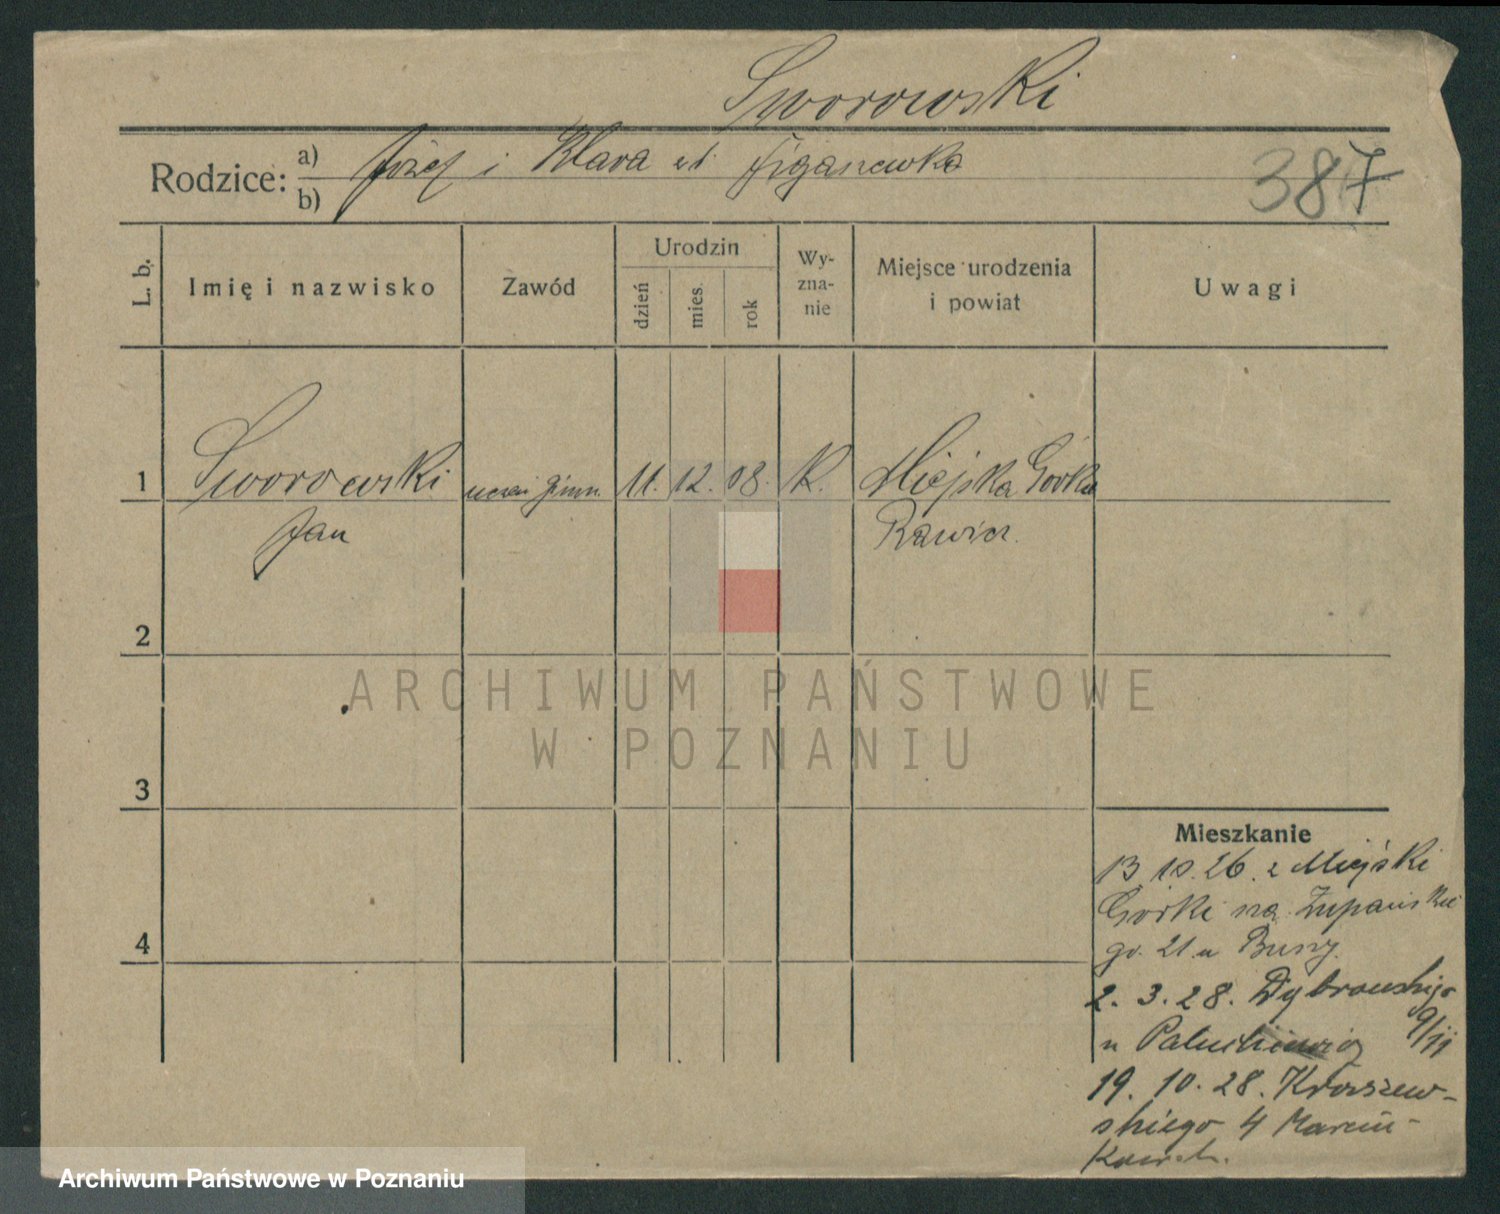 Sworowski
Rodzice: a) Józef i Klara
b)
387
L. b.
Imię i nazwisko
Zawód
Urodzin
dzień
mies.
rok
Wy-
zna-
nie
Miejsce urodzenia
i powiat
Uwagi
1 Sworowski uczeń gimn. 11. 12. 08. K. Miejska Górka
Jan Rawicz.
2
ARCHIWUM PAŃSTWOWE
W POZNANIU
3
4
Mieszkanie
13 10.26. z Miejski
Górki na Żupańskie
go. 21. u
2. 3. 28. Dąbrowskiego
u 9/11
19. 10. 28. Kraszew-
skiego 4 Marcin-
Archiwum Państwowe w Poznaniu